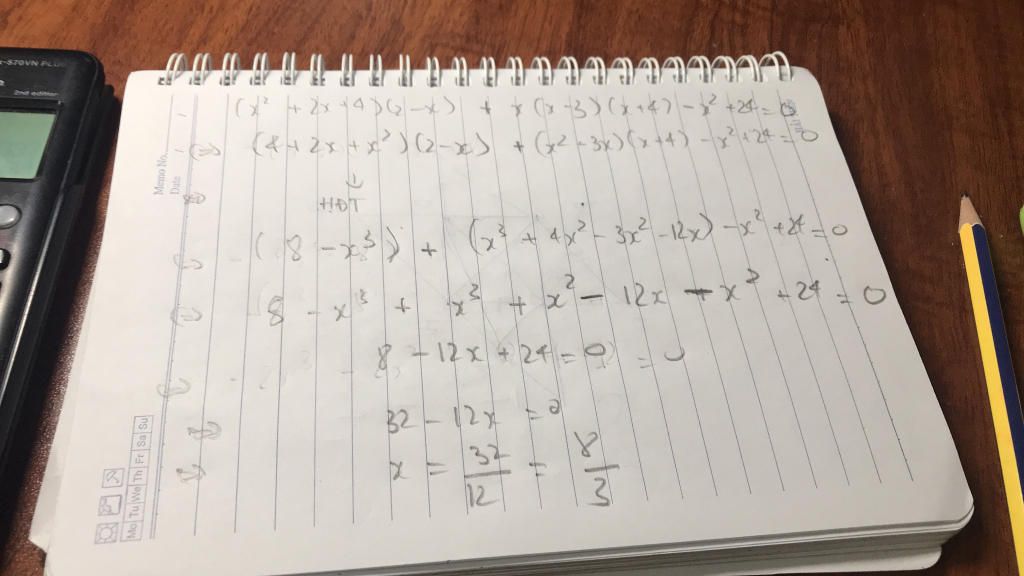 x-570VN PLUS
2nd edition
(x² + 2x+4)(2-x) + x(x-3)(x+4) - x² +24 = 0
(4+2x+x²)(2-x) + (x²-3x)(x+4) - x² +24 = 0
Memo No.
Date
HĐT
(8 - x³) + (x³ + 4x² - 3x² -12x) - x² +24 = 0
8 - x³ + x³ + x² - 12x - x² +24 = 0
8 - 12x + 24 = 0 = 0
32 - 12x = 0
x = 32/12 = 8/3
Mo Tu We Th Fr Sa Su